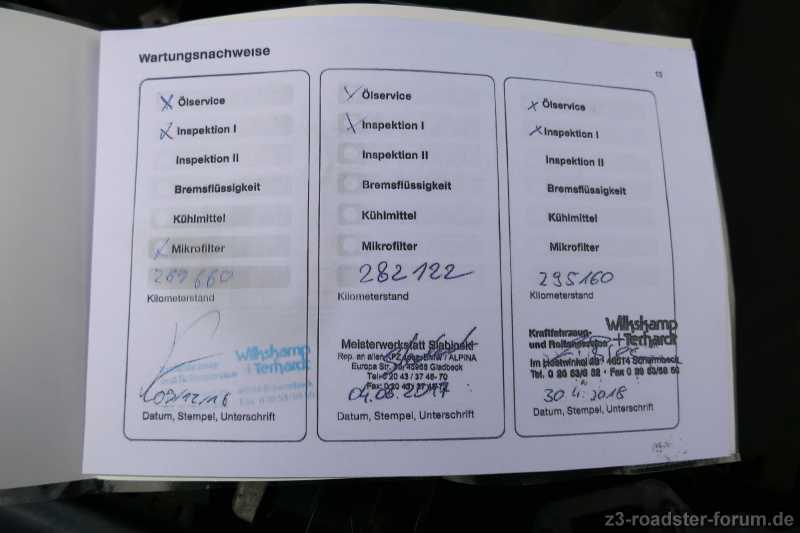 Wartungsnachweise
13
Ölservice
Inspektion I
Inspektion II
Bremsflüssigkeit
Kühlmittel
Mikrofilter
269660
Kilometerstand
Wilkskamp
+Terhardt
Datum, Stempel, Unterschrift
Ölservice
Inspektion I
Inspektion II
Bremsflüssigkeit
Kühlmittel
Mikrofilter
282122
Kilometerstand
Meisterwerkstatt Slabinski
Rep. an allen BMW / ALPINA
Europa Str. 45968 Gladbeck
Tel. 0 20 43 / 37 46-70
Datum, Stempel, Unterschrift
Ölservice
Inspektion I
Inspektion II
Bremsflüssigkeit
Kühlmittel
Mikrofilter
295160
Kilometerstand
Wilkskamp
+Terhardt
Kraftfahrzeug-
und Reifenservice
46514 Schermbeck
30.4.2018
Datum, Stempel, Unterschrift
z3-roadster-forum.de